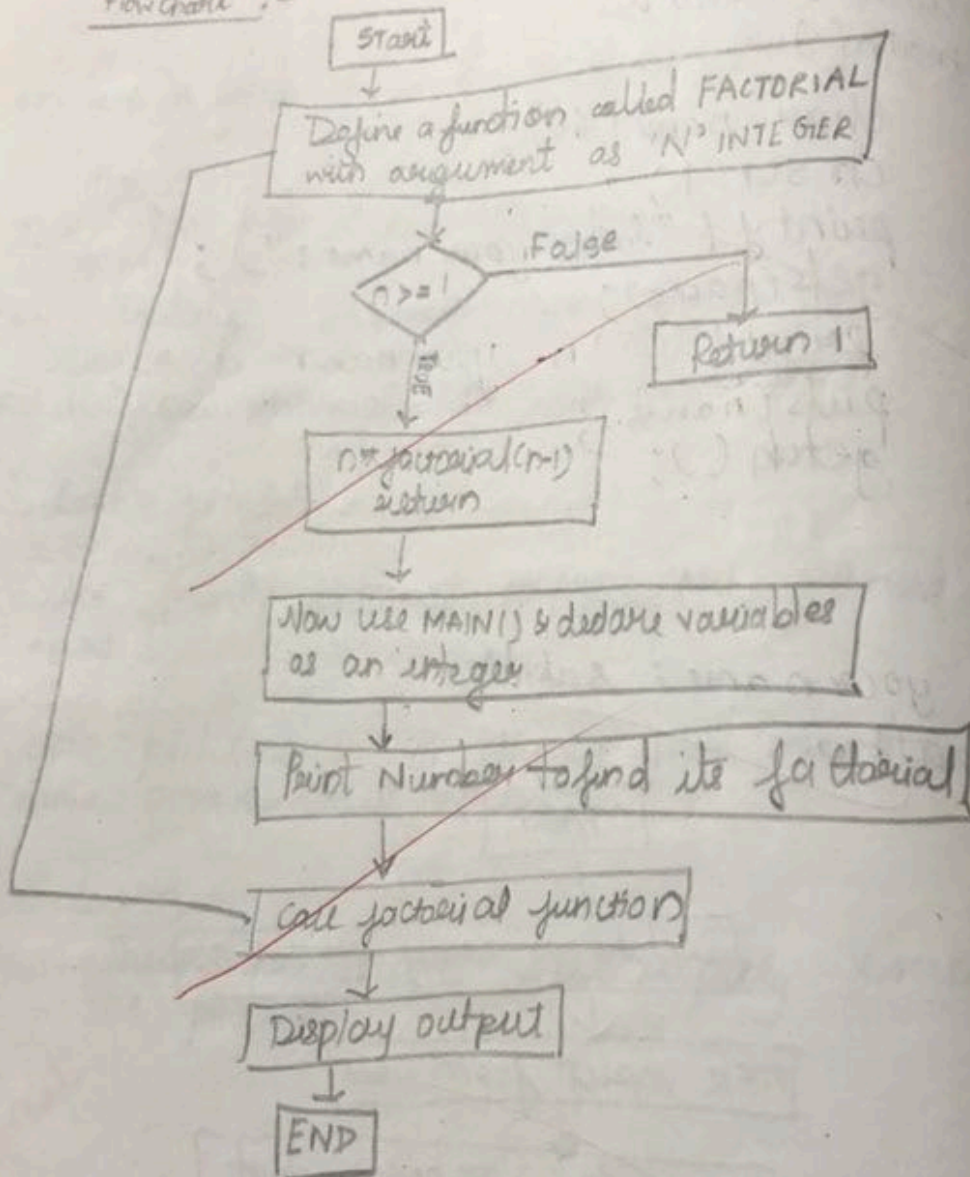 Flowchart :
Start
Define a function called FACTORIAL
with argument as 'N' INTEGER
n >= 1
False
TRUE
Return 1
n* factorial(n-1)
return
Now use MAIN() & declare variables
as an integer
Print Number to find its factorial
Call factorial function
Display output
END